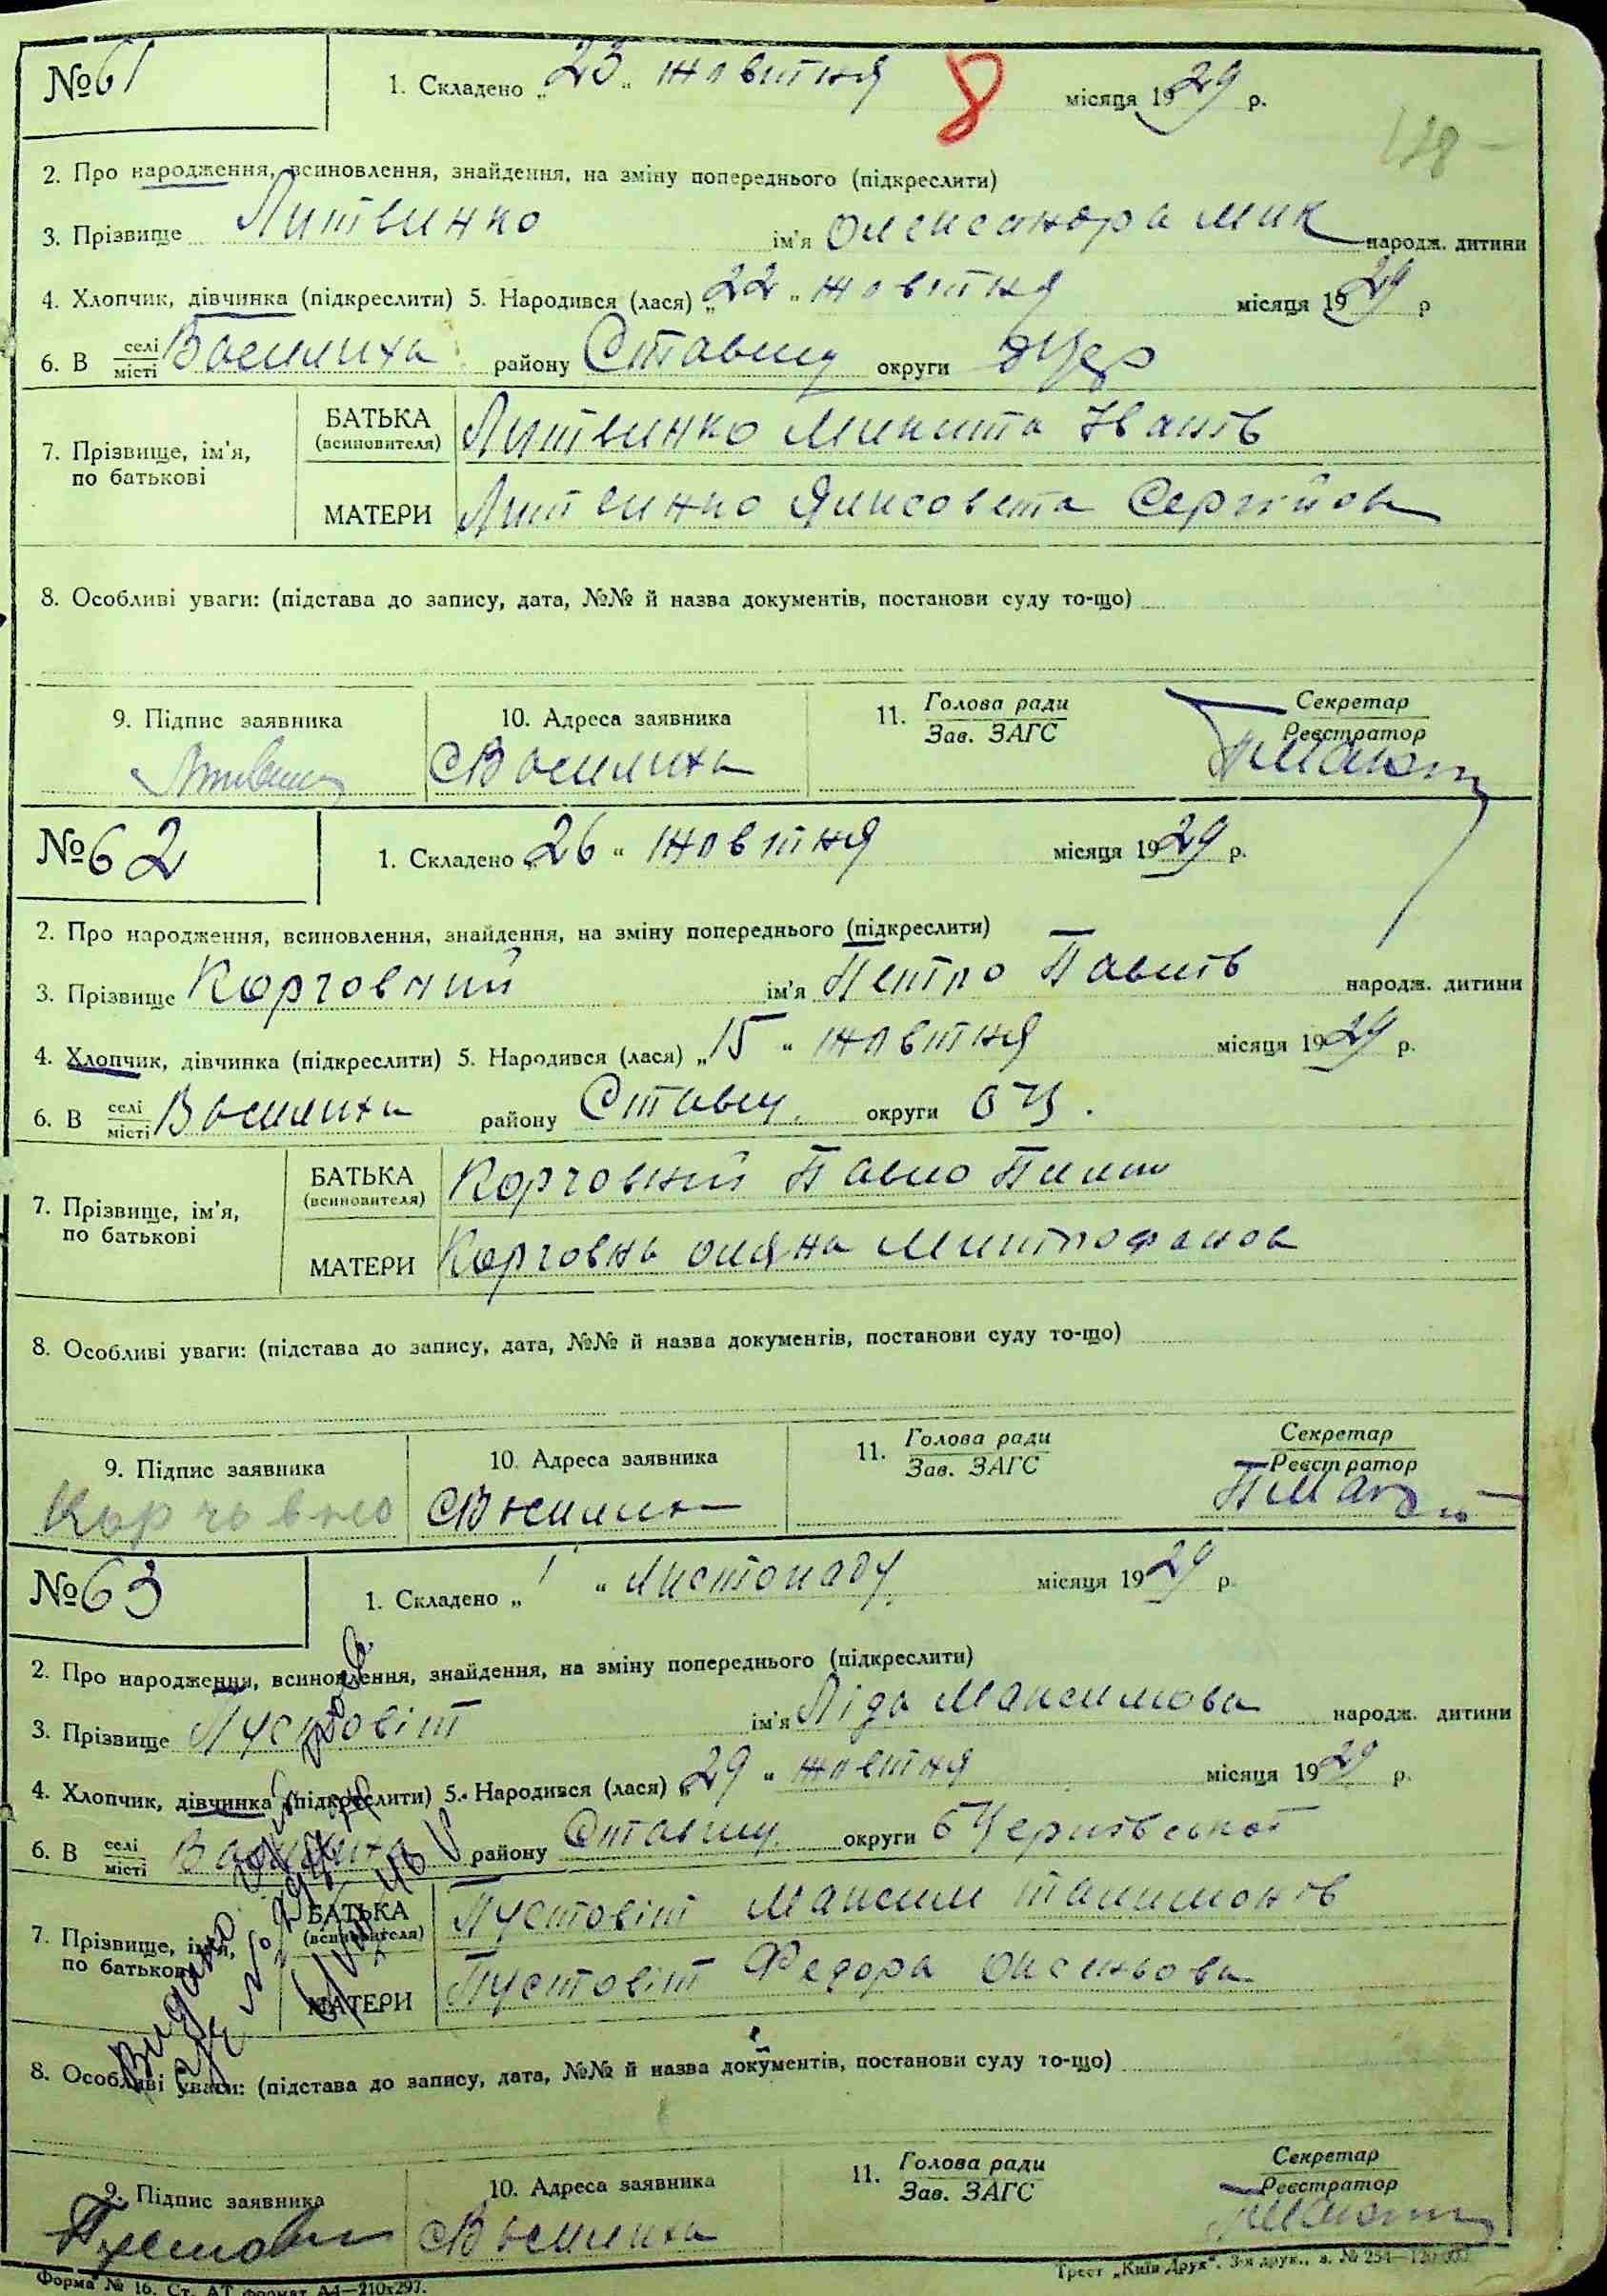 № 61
1. Складено „ 23 “ жовтня місяця 1929 р.
8
2. Про народження, всиновлення, знайдення, на зміну попереднього (підкреслити)
3. Прізвище Литвинко ім'я Олександра Мик народж. дитини
4. Хлопчик, дівчинка (підкреслити) 5. Народився (лася) „ 22 “ жовтня місяця 1929 р
6. В селі місті Василиха району Ставищ округи БЦер
7. Прізвище, ім'я, по батькові
БАТЬКА (всиновителя) Литвинко Микита Іванів
МАТЕРИ Литвинко Ялисовета Сергійов
8. Особливі уваги: (підстава до запису, дата, №№ й назва документів, постанови суду то-що)
9. Підпис заявника 10. Адреса заявника 11. Голова ради Зав. ЗАГС Секретар Реєстратор
с Василиха
№ 62
1. Складено „ 26 “ жовтня місяця 1929 р.
2. Про народження, всиновлення, знайдення, на зміну попереднього (підкреслити)
3. Прізвище Корчовний ім'я Петро Павлів народж. дитини
4. Хлопчик, дівчинка (підкреслити) 5. Народився (лася) „ 15 “ жовтня місяця 1929 р.
6. В селі місті Василиха району Ставищ. округи БЦ.
7. Прізвище, ім'я, по батькові
БАТЬКА (всиновителя) Корчовний Павло
МАТЕРИ Корчовна Оляна Митрофанов
8. Особливі уваги: (підстава до запису, дата, №№ й назва документів, постанови суду то-що)
9. Підпис заявника 10. Адреса заявника 11. Голова ради Зав. ЗАГС Секретар Реєстратор
с Василих
№ 63
1. Складено „ 1 “ Листопаду місяця 1929 р.
2. Про народження, всиновлення, знайдення, на зміну попереднього (підкреслити)
3. Прізвище Пустовіт ім'я Ліда Максимова народж. дитини
4. Хлопчик, дівчинка (підкреслити) 5. Народився (лася) „ 29 “ жовтня місяця 1929 р.
6. В селі місті Василиха району Ставищ. округи БЦерківської
7. Прізвище, ім'я, по батькові
БАТЬКА (всиновителя) Пустовіт Максим
МАТЕРИ Пустовіт Федора Оксеньова
Видано
8. Особливі уваги: (підстава до запису, дата, №№ й назва документів, постанови суду то-що)
9. Підпис заявника 10. Адреса заявника 11. Голова ради Зав. ЗАГС Секретар Реєстратор
с Василиха
Форма № 16. Ст. АТ формат А4—210х297.
Трест „Київ Друк“. 3-я друк., з. № 254—